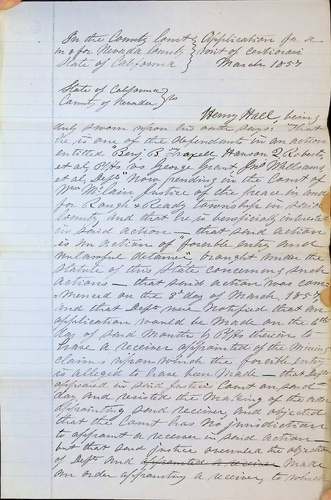 In the County Court } Application for a
in & for Nevada County } writ of certiorari
State of California } March 1857
State of California
County of Nevada } ss
Henry Hall, being
duly sworn upon his oath says: That
he is one of the defendants in an action
entitled "Benj. B. Hanson Q Roberts
et al, Plffs vs George Grant Williams
et al, Defts" Now pending in the Court of
Wm McLain Justice of the peace in and
for Rough & Ready Township in said
County, and that he is beneficially interested
in said action – that said action
is an action of "forcible entry and
unlawful detainer" brought under the
statute of this State concerning such
actions – that said action was com-
menced on the 3d day of March, 1857
and that Defts were notified that an
application would be made on the 6th
day of same Month by Plffs therein to
have a receiver appointed of the Mining
claim upon which the forcible entry
is alleged to have been made – that Defts
appeared in said Justice Court on said
day and resisted the making of the order
appointing said receiver and objected
that the Court has no jurisdiction
to appoint a receiver in said action –
but that said Justice overruled the objection
of Defts and appointed a receiver made
an order appointing a receiver, to which